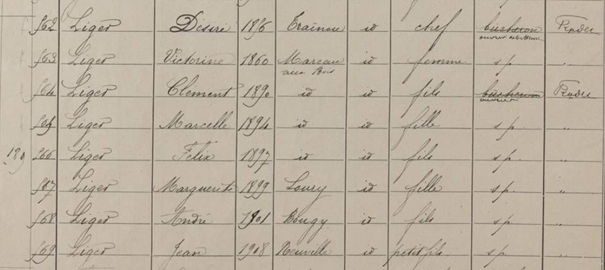 562 Liger Désiré 1856 Trainou id chef bucheron ouvrier Rodes
563 Liger Victorine 1860 Mareau aux Bois id femme sp "
564 Liger Clément 1890 id id fils bucheron ouvrier Rodes
565 Liger Marcelle 1894 id id fille sp "
129 566 Liger Félix 1897 id id fils sp "
567 Liger Marguerite 1899 Loury id fille sp "
568 Liger André 1901 Bougy id fils sp "
569 Liger Jean 1908 Neuville id petit fils sp "